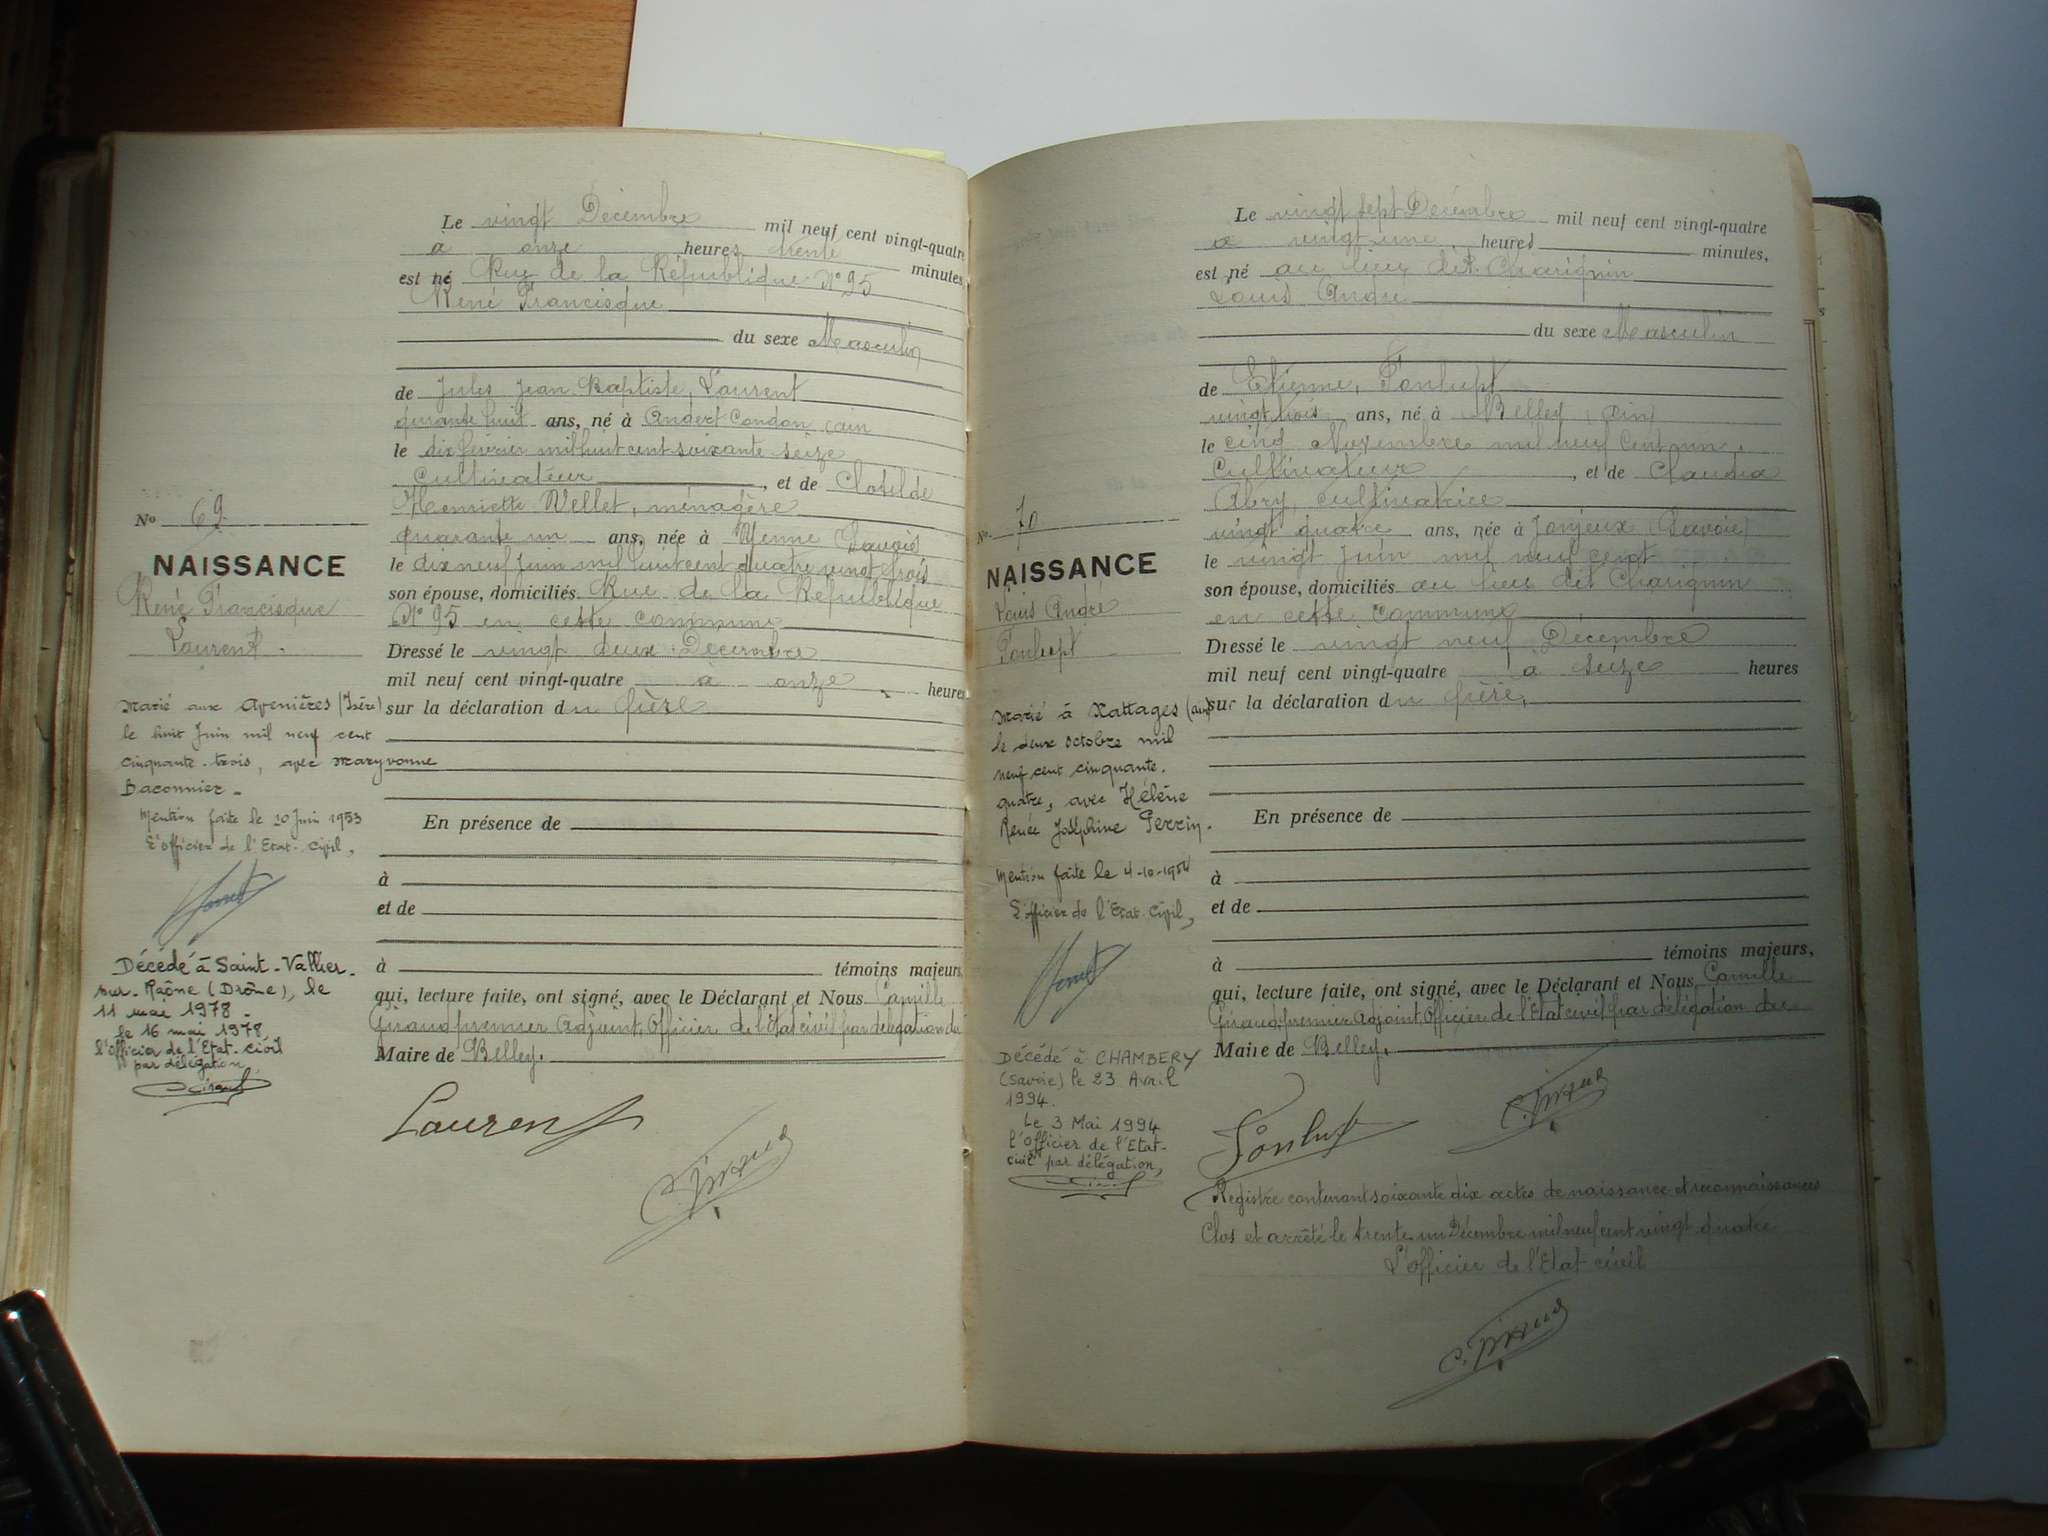 Le vingt Décembre mil neuf cent vingt-quatre
à onze heures trente minutes
est né Rue de la République N° 95
René Francisque
du sexe Masculin
de Jules Jean Baptiste, Laurent
quarante huit ans, né à Andert Condon (ain
le dix février mil huit cent soixante seize
Cultivateur, et de Clotilde
Henriette Vellet, ménagère
quarante un ans, née à Yenne (Savoie)
le dix neuf Juin mil huit cent quatre vingt trois
son épouse, domiciliés Rue de la République
N° 95 en cette commune
Dressé le vingt deux Décembre
mil neuf cent vingt-quatre à onze heures
sur la déclaration du père
En présence de
à
et de
à témoins majeurs,
qui, lecture faite, ont signé, avec le Déclarant et Nous Camille
Giraud premier adjoint, Officier de l'état civil par délégation du
Maire de Belley.
Laurent
C. Giraud
No 69
NAISSANCE
René Francisque
Laurent.
Marié aux Avenières (Isère)
le huit Juin mil neuf cent
cinquante-trois, avec Maryvonne
Baconnier.
Mention faite le 10 Juin 1953
L'officier de l'Etat-Civil,
Décédé à Saint-Vallier-
sur-Rhône (Drôme), le
11 mai 1978.
le 16 mai 1978
l'Officier de l'Etat-civil
par délégation
Le vingt sept Décembre mil neuf cent vingt-quatre
à vingt une heures minutes,
est né au lieu dit Charignin
Louis André
du sexe Masculin
de Etienne, Fonlupt
vingt trois ans, né à Belley (ain)
le cinq Novembre mil neuf cent un
Cultivateur, et de Claudia
Abry, cultivatrice
vingt quatre ans, née à Jonjeux (Savoie)
le vingt Juin mil neuf cent
son épouse, domiciliés au lieu dit Charignin
en cette commune
Dressé le vingt neuf Décembre
mil neuf cent vingt-quatre à seize heures
sur la déclaration du père,
En présence de
à
et de
à témoins majeurs,
qui, lecture faite, ont signé, avec le Déclarant et Nous Camille
Giraud, premier adjoint, Officier de l'Etat civil par délégation du
Maire de Belley.
Fonlupt
C. Giraud
Registre contenant soixante dix actes de naissance et reconnaissances
Clos et arrêté le trente un Décembre mil neuf cent vingt quatre
L'officier de l'Etat civil
C. Giraud
No. 70
NAISSANCE
Louis André
Fonlupt
Marié à Nattages (ain)
le deux octobre mil
neuf cent cinquante.
quatre, avec Hélène
Renée Joséphine Perrin.
Mention faite le 4-10-1954
L'officier de l'Etat Civil,
Décédé à CHAMBERY
(Savoie) le 23 Avril
1994.
Le 3 Mai 1994
l'officier de l'Etat-
civil par délégation,